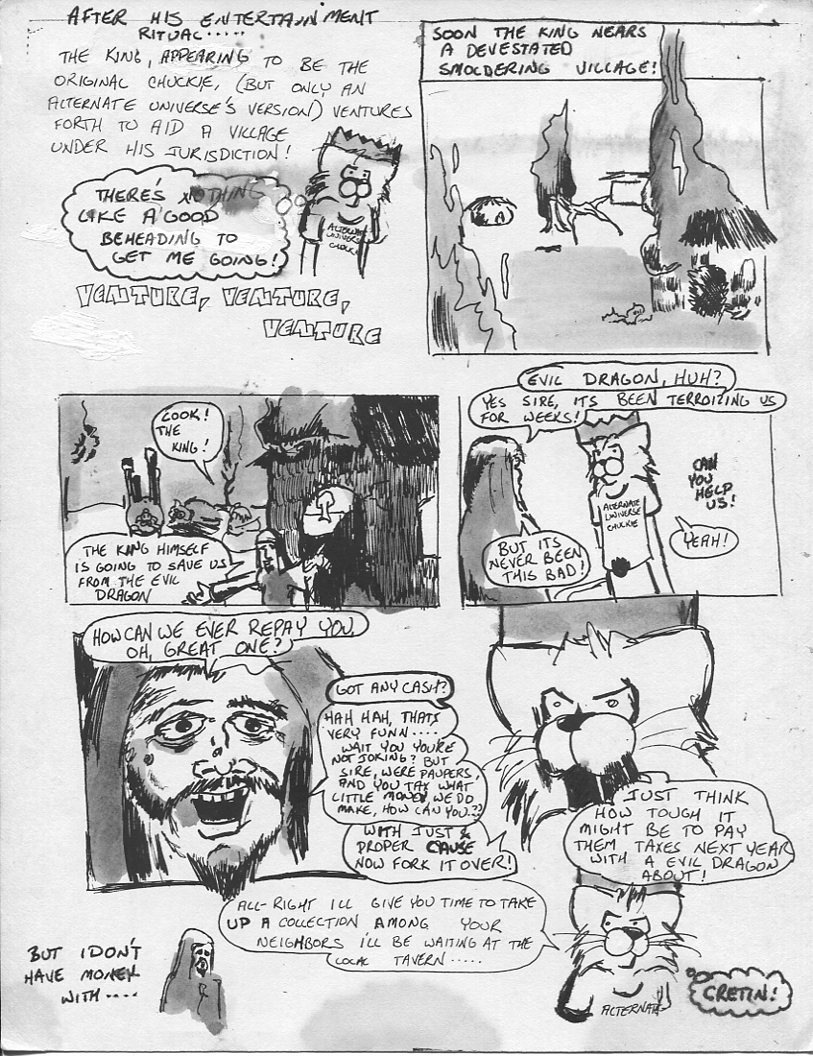 AFTER HIS ENTERTAIN'MENT
RITUAL.....
THE KING, APPEARING TO BE THE
ORIGINAL CHUCKIE, (BUT ONLY AN
ALTERNATE UNIVERSE'S VERSION) VENTURES
FORTH TO AID A VILLAGE
UNDER HIS JURISDICTION!
THERE'S NOTHING
LIKE A GOOD
BEHEADING TO
GET ME GOING!
ALTERNATE
UNIVERSE
CHUCKIE
VENTURE, VENTURE,
VENTURE
SOON THE KING NEARS
A DEVESTATED
SMOLDERING VILLAGE!
LOOK!
THE
KING!
THE KING HIMSELF
IS GOING TO SAVE US
FROM THE EVIL
DRAGON
EVIL DRAGON, HUH?
YES SIRE, ITS BEEN TERROIZING US
FOR WEEKS!
BUT ITS
NEVER BEEN
THIS BAD!
ALTERNATE
UNIVERSE
CHUCKIE
CAN
YOU
HELP
US!
YEAH!
HOW CAN WE EVER REPAY YOU
OH, GREAT ONE?
GOT ANY CASH?
HAH HAH, THATS
VERY FUNN....
WAIT YOU YOU'RE
NOT JOKING? BUT
SIRE, WERE PAUPERS,
AND YOU TAX WHAT
LITTLE MONEY WE DO
MAKE, HOW CAN YOU??
WITH JUST &
PROPER CAUSE
NOW FORK IT OVER!
JUST THINK
HOW TOUGH IT
MIGHT BE TO PAY
THEM TAXES NEXT YEAR
WITH A EVIL DRAGON
ABOUT!
ALL-RIGHT I'LL GIVE YOU TIME TO TAKE
UP A COLLECTION AMONG YOUR
NEIGHBORS I'LL BE WAITING AT THE
LOCAL TAVERN.....
BUT I DON'T
HAVE MONEY
WITH....
ALTERNATE
CRETIN!